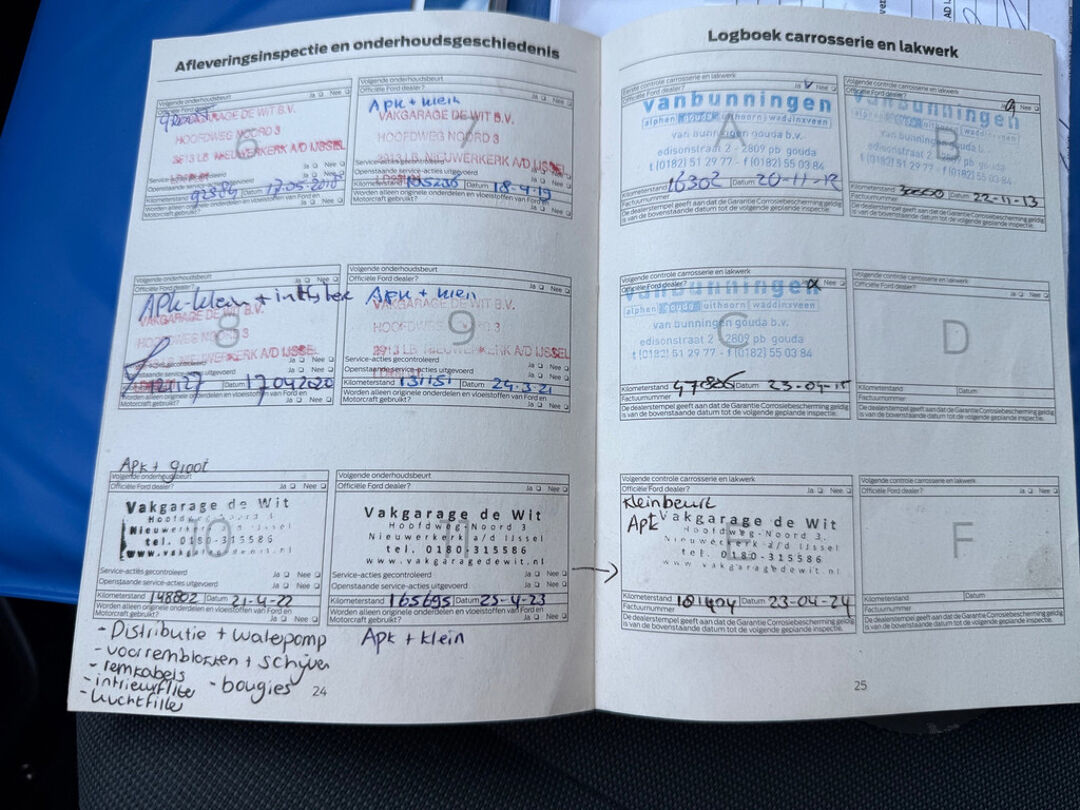 Afleveringsinspectie en onderhoudsgeschiedenis
Volgende onderhoudsbeurt
Officiële Ford dealer? Ja Nee
VAKGARAGE DE WIT B.V.
HOOFDWEG NOORD 3
2913 LB NIEUWERKERK A/D IJSSEL
6
Ja Nee
Openstaande service-acties uitgevoerd Ja Nee
Kilometerstand Datum 17.05.2018
Worden alleen originele onderdelen en vloeistoffen van Ford en
Motorcraft gebruikt? Ja Nee
Volgende onderhoudsbeurt
Officiële Ford dealer? Ja Nee
Apk + klein
VAKGARAGE DE WIT B.V.
HOOFDWEG NOORD 3
7
2913 LB NIEUWERKERK A/D IJSSEL
Openstaande service-acties uitgevoerd Ja Nee
Kilometerstand Datum
Worden alleen originele onderdelen en vloeistoffen van Ford en
Motorcraft gebruikt? Ja Nee
Volgende onderhoudsbeurt
Officiële Ford dealer? Ja Nee
APK-klein +
VAKGARAGE DE WIT B.V.
HOOFDWEG NOORD 3
8
2913 LB NIEUWERKERK A/D IJSSEL
Ja Nee
Ja Nee
Datum 17042020
Worden alleen originele onderdelen en vloeistoffen van Ford en
Motorcraft gebruikt? Ja Nee
Volgende onderhoudsbeurt
Officiële Ford dealer?
Apk + klein
VAKGARAGE DE WIT B.V.
HOOFDWEG NOORD 3
9
2913 LB NIEUWERKERK A/D IJSSEL
Service-acties gecontroleerd Ja Nee
Openstaande service-acties uitgevoerd Ja Nee
Kilometerstand 131151 Datum 24.3.21
Worden alleen originele onderdelen en vloeistoffen van Ford en
Motorcraft gebruikt? Ja Nee
Apk + groot
Volgende onderhoudsbeurt
Officiële Ford dealer? Ja Nee
Vakgarage de Wit
Hoofdweg Noord 3
Nieuwerkerk a/d IJssel
tel. 0180-315586
www.vakgaragedewit.nl
10
Service-acties gecontroleerd Ja Nee
Openstaande service-acties uitgevoerd Ja Nee
Kilometerstand 148802 Datum 21-4-22
Worden alleen originele onderdelen en vloeistoffen van Ford en
Motorcraft gebruikt? Ja Nee
- Distributie + waterpomp
- voorremblokken + schijven
- remkabels
- interieurfilter - bougies
- luchtfilter
Volgende onderhoudsbeurt
Officiële Ford dealer? Ja Nee
Vakgarage de Wit
Hoofdweg Noord 3
Nieuwerkerk a/d IJssel
tel. 0180-315586
www.vakgaragedewit.nl
11
Service-acties gecontroleerd Ja Nee
Openstaande service-acties uitgevoerd Ja Nee
Kilometerstand 165695 Datum 25-4-23
Worden alleen originele onderdelen en vloeistoffen van Ford en
Motorcraft gebruikt? Ja Nee
Apk + klein
24
Logboek carrosserie en lakwerk
Eerste controle carrosserie en lakwerk
Officiële Ford dealer? Ja Nee
vanbunningen
alphen gouda uithoorn waddinxveen
A
van bunningen gouda b.v.
edisonstraat 2 - 2809 pb gouda
t (0182) 51 29 77 - f (0182) 55 03 84
Kilometerstand 16302 Datum 20-11-12
Factuurnummer
De dealerstempel geeft aan dat de Garantie Corrosiebescherming geldig
is van de bovenstaande datum tot de volgende geplande inspectie.
Volgende controle carrosserie en lakwerk
Officiële Ford dealer? Nee
vanbunningen
B
van bunningen gouda b.v.
edisonstraat 2 - 2809 pb gouda
t (0182) 51 29 77 - f (0182) 55 03 84
Kilometerstand Datum 22-11-13
Factuurnummer
De dealerstempel geeft aan dat de Garantie Corrosiebescherming geldig
is van de bovenstaande datum tot de volgende geplande inspectie.
Volgende controle carrosserie en lakwerk
Officiële Ford dealer? Nee
vanbunningen
alphen gouda uithoorn waddinxveen
C
van bunningen gouda b.v.
edisonstraat 2 - 2809 pb gouda
t (0182) 51 29 77 - f (0182) 55 03 84
Kilometerstand Datum
Factuurnummer
De dealerstempel geeft aan dat de Garantie Corrosiebescherming geldig
is van de bovenstaande datum tot de volgende geplande inspectie.
Volgende controle carrosserie en lakwerk
Officiële Ford dealer? Ja Nee
D
Kilometerstand Datum
Factuurnummer
De dealerstempel geeft aan dat de Garantie Corrosiebescherming geldig
is van de bovenstaande datum tot de volgende geplande inspectie.
Volgende controle carrosserie en lakwerk
Officiële Ford dealer? Ja Nee
Kleinbeurt
Apk
Vakgarage de Wit
Hoofdweg-Noord 3.
Nieuwerkerk a/d IJssel
tel. 0180-315586
www.vakgaragedewit.nl
E
Kilometerstand 181404 Datum 23-04-24
Factuurnummer
De dealerstempel geeft aan dat de Garantie Corrosiebescherming geldig
is van de bovenstaande datum tot de volgende geplande inspectie.
Volgende controle carrosserie en lakwerk
Officiële Ford dealer? Ja Nee
F
Kilometerstand Datum
Factuurnummer
De dealerstempel geeft aan dat de Garantie Corrosiebescherming geldig
is van de bovenstaande datum tot de volgende geplande inspectie.
25